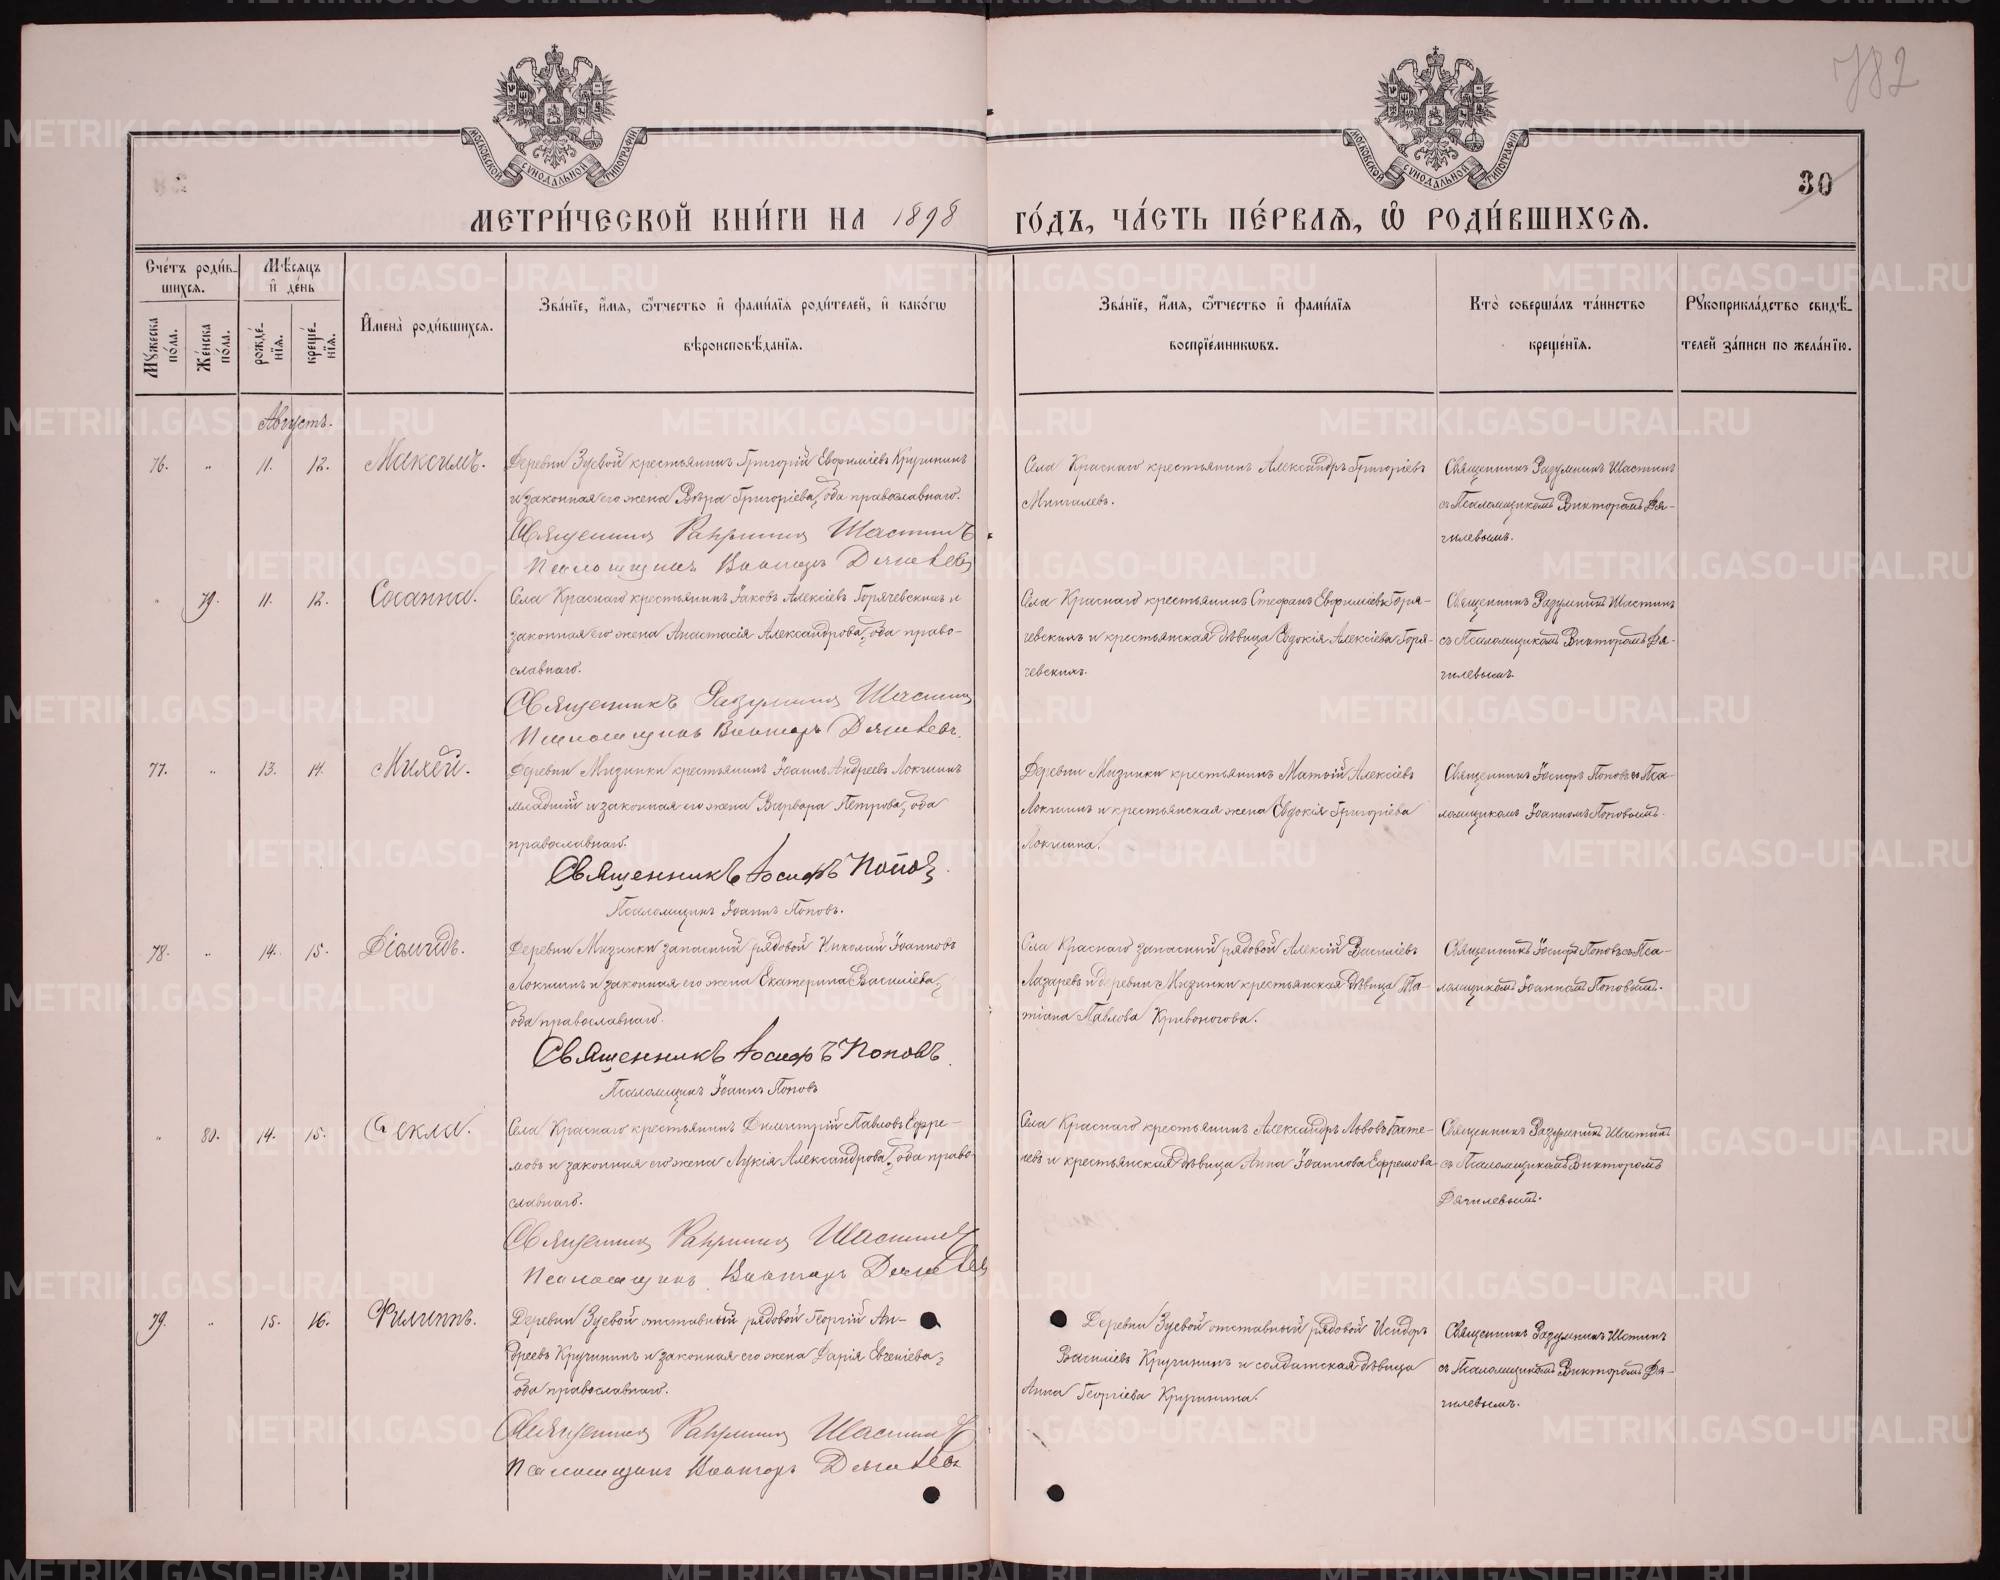 782
30
МОСКОВСКОЙ СУНОДАЛЬНОЙ ТИПОГРАФІИ
МОСКОВСКОЙ СУНОДАЛЬНОЙ ТИПОГРАФІИ
МЕТРИ́ЧЕСКОЙ КНИ́ГИ НА 1898 ГО́ДЪ, ЧА́СТЬ ПЕ́РВАЯ, Ѿ РОДИ́ВШИХСЯ.
Сче́тъ роди́в-
шихся.
Мужеска по́ла.
Же́нска по́ла.
Мѣсяцъ
и де́нь
рожде́-
нія.
креще́-
нія.
Имена̀ роди́вшихся.
Зва́ніе, и́мя, ѻ́тчество и фами́лія роди́телей, и како́гѡ
вѣроисповѣ́данія.
Зва́ніе, и́мя, ѻ́тчество и фами́лія
воспріе́мникѡвъ.
Кто̀ соверша́лъ та́инство
креще́нія.
Рукоприкла́дство свидѣ́-
телей за́писи по жела́нію.
Августъ.
76. „ 11. 12. Максимъ.
Деревни Зуевой крестьянинъ Григорій Евфиміевъ Кручининъ
и законная его жена Вѣра Григоріева, оба православнаго.
Священникъ Разумникъ Шастинъ
Псаломщикъ Викторъ Дягилевъ
Села Краснаго крестьянинъ Александръ Григоріевъ
Мингалевъ.
Священникъ Разумникъ Шастинъ
съ Псаломщикомъ Викторомъ Дя-
гилевымъ.
„ 79. 11. 12. Сосанна.
Села Краснаго крестьянинъ Іаковъ Алексіевъ Горячевскихъ и
законная его жена Анастасія Александрова, оба право-
славнаго.
Священникъ Разумникъ Шастинъ
Псаломщикъ Викторъ Дягилевъ.
Села Краснаго крестьянинъ Стефанъ Евфиміевъ Горя-
чевскихъ и крестьянская дѣвица Евдокія Алексіева Горя-
чевскихъ.
Священникъ Разумникъ Шастинъ
съ Псаломщикомъ Викторомъ Дя-
гилевымъ.
77. „ 13. 14. Михей.
Деревни Мизинки крестьянинъ Іоаннъ Андреевъ Локшинъ
младшій и законная его жена Варвара Петрова, оба
православнаго.
Священникъ Іосифъ Поповъ
Псаломщикъ Іоаннъ Поповъ.
Деревни Мизинки крестьянинъ Матѳій Алексіевъ
Локшинъ и крестьянская жена Евдокія Григоріева
Локшина.
Священникъ Іосифъ Поповъ съ Пса-
ломщикомъ Іоанномъ Поповымъ.
78. „ 14. 15. Діомидъ.
Деревни Мизинки запасный рядовой Николай Іоанновъ
Локшинъ и законная его жена Екатерина Василіева,
оба православнаго.
Священникъ Іосифъ Поповъ.
Псаломщикъ Іоаннъ Поповъ
Села Краснаго запасный рядовой Алексій Василіевъ
Лазаревъ и деревни Мизинки крестьянская дѣвица Та-
тіана Павлова Кривоногова.
Священникъ Іосифъ Поповъ съ Пса-
ломщикомъ Іоанномъ Поповымъ.
„ 80. 14. 15. Ѳекла.
Села Краснаго крестьянинъ Димитрій Павловъ Ефре-
мовъ и законная его жена Лукія Александрова, оба право-
славнаго.
Священникъ Разумникъ Шастинъ
Псаломщикъ Викторъ Дягилевъ
Села Краснаго крестьянинъ Александръ Львовъ
и крестьянская дѣвица Анна Іоаннова Ефремова
Священникъ Разумникъ Шастинъ
съ Псаломщикомъ Викторомъ
Дягилевымъ.
79. „ 15. 16. Филиппъ.
Деревни Зуевой отставный рядовой Георгій Ан-
дреевъ Кручининъ и законная его жена Дарія Евгеніева,
оба православнаго.
Священникъ Разумникъ Шастинъ
Псаломщикъ Викторъ Дягилевъ
Деревни Зуевой отставный рядовой Исидоръ
Василіевъ Кручининъ и солдатская дѣвица
Анна Георгіева Кручинина.
Священникъ Разумникъ Шастинъ
съ Псаломщикомъ Викторомъ Дя-
гилевымъ.
METRIKI.GASO-URAL.RU